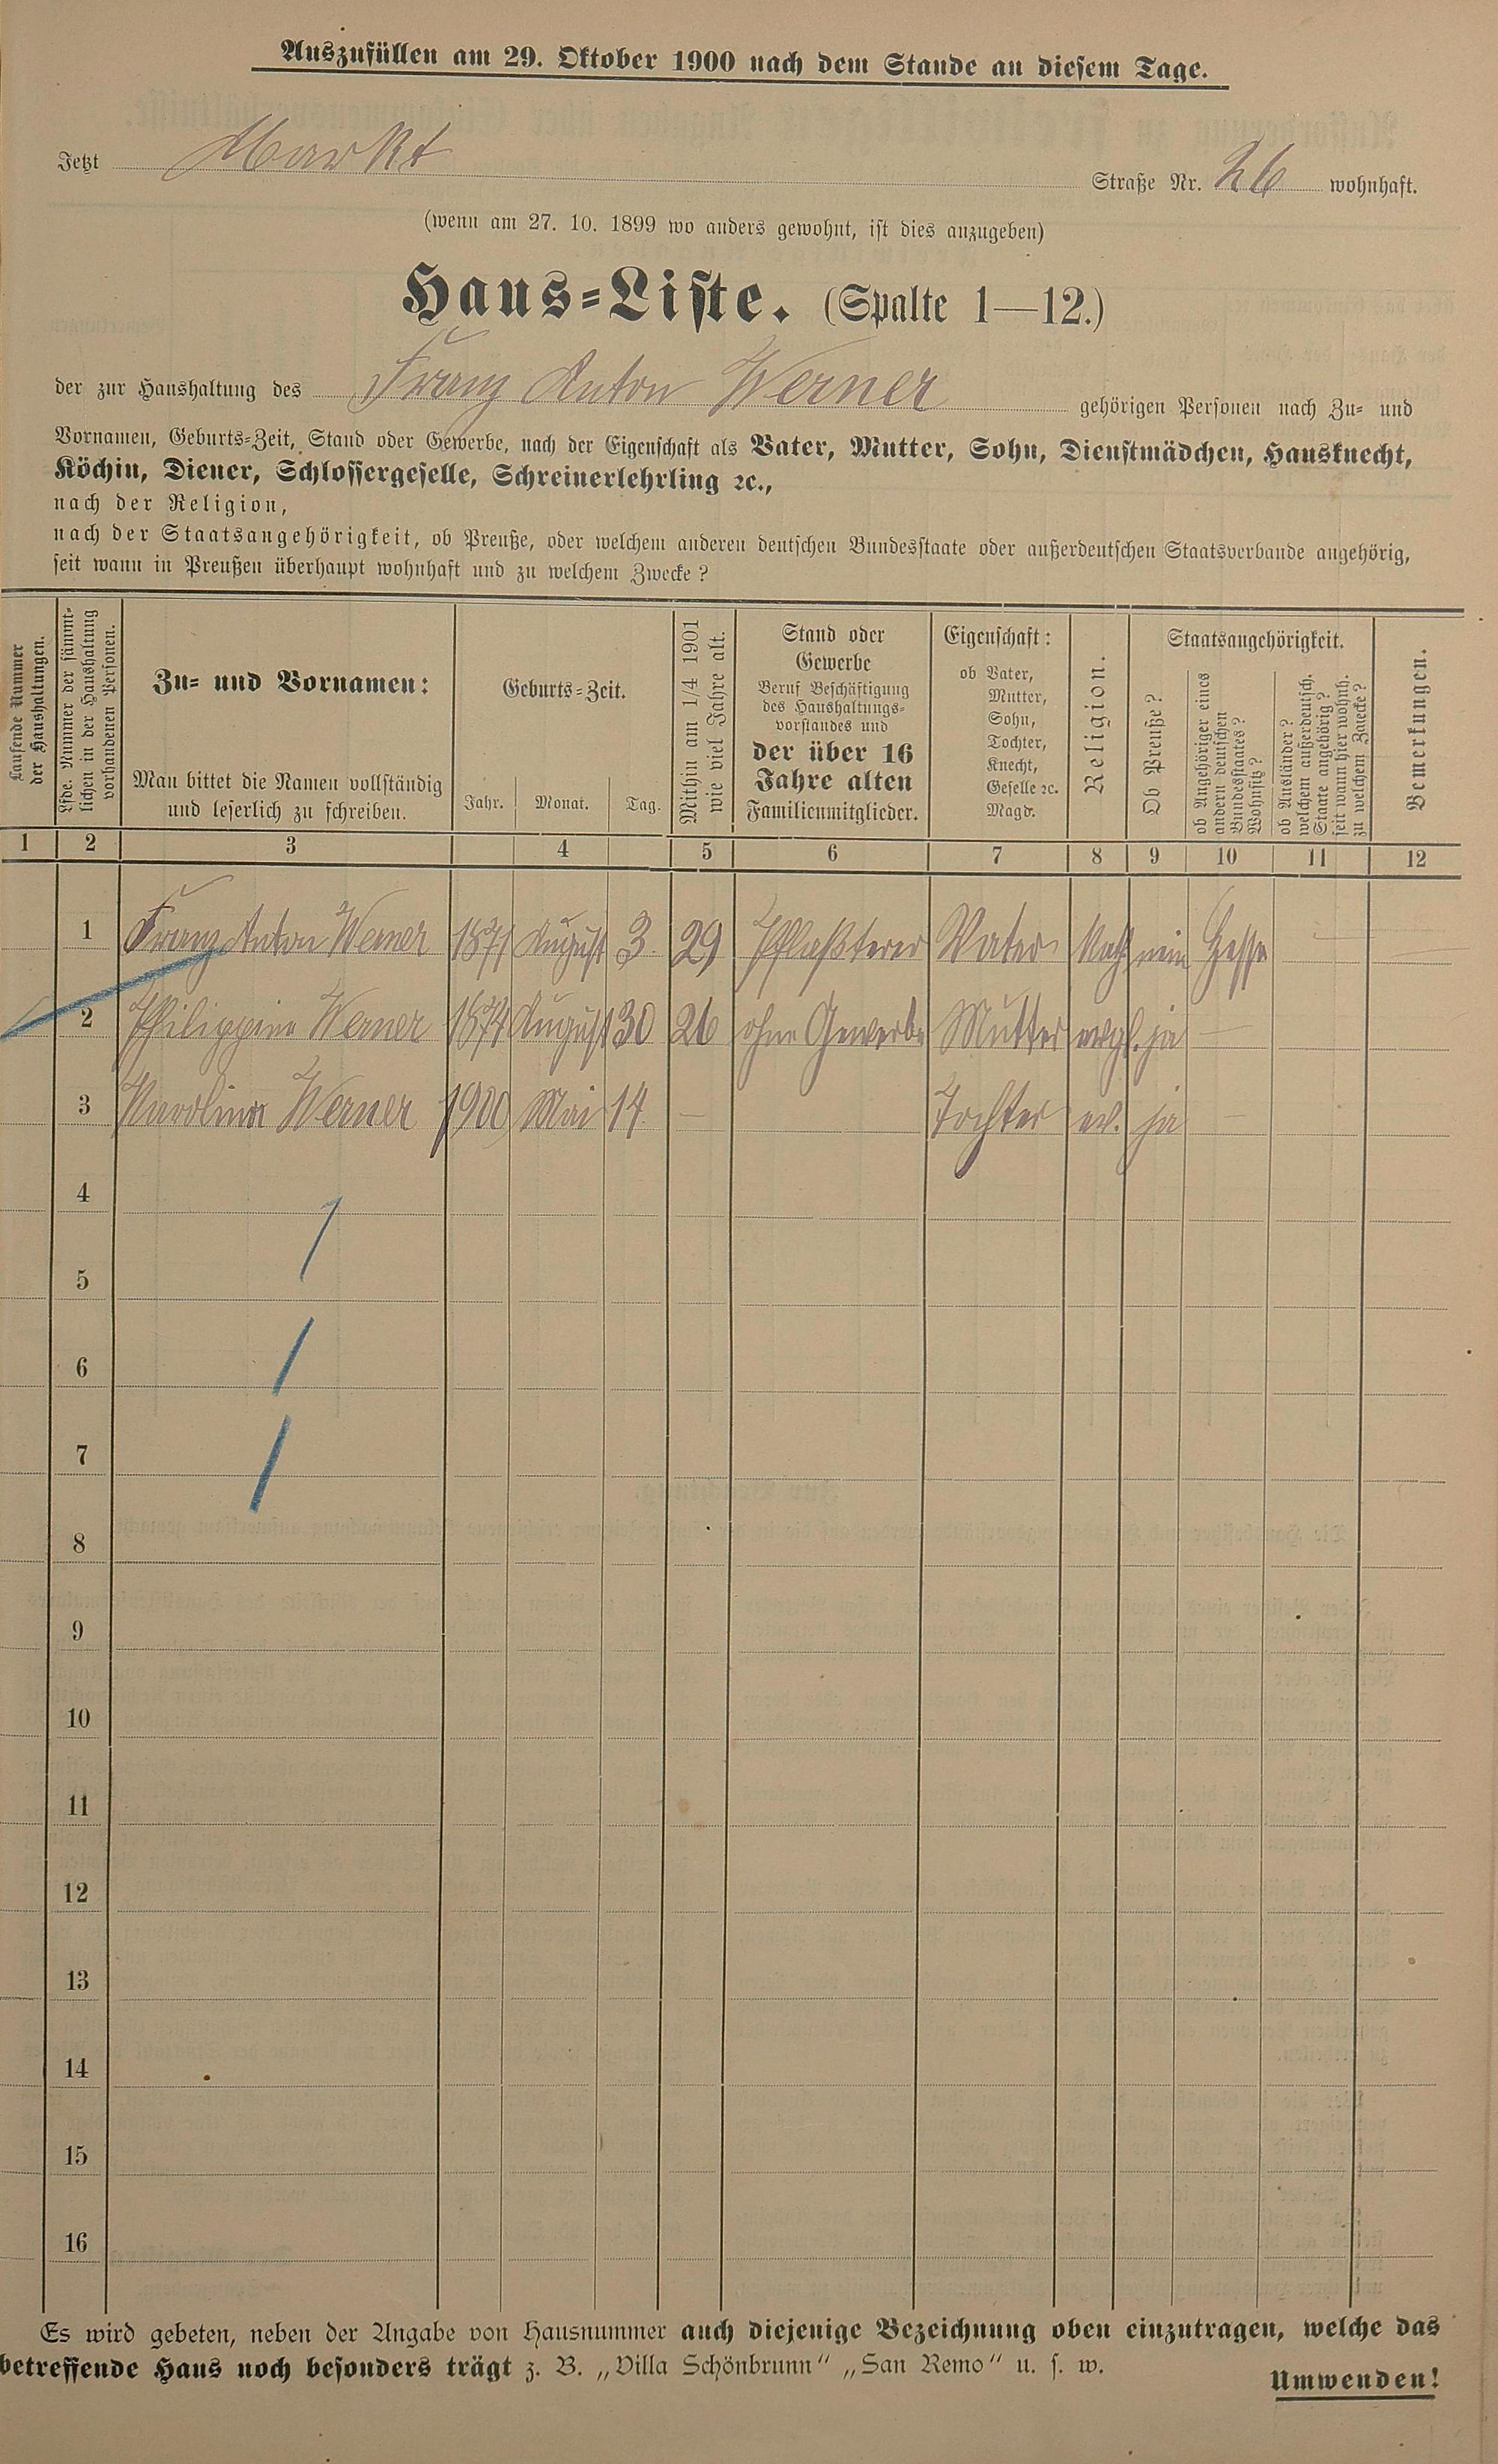 Auszufüllen am 29. Oktober 1900 nach dem Stande an diesem Tage.
Jetzt Markt Straße Nr. 26 wohnhaft.
(wenn am 27. 10. 1899 wo anders gewohnt, ist dies anzugeben)
Haus-Liste. (Spalte 1—12.)
der zur Haushaltung des Franz Anton Werner gehörigen Personen nach Zu- und
Vornamen, Geburts-Zeit, Stand oder Gewerbe, nach der Eigenschaft als Vater, Mutter, Sohn, Dienstmädchen, Hausknecht,
Köchin, Diener, Schlossergeselle, Schreinerlehrling ꝛc.,
nach der Religion,
nach der Staatsangehörigkeit, ob Preuße, oder welchem anderen deutschen Bundesstaate oder außerdeutschen Staatsverbande angehörig,
seit wann in Preußen überhaupt wohnhaft und zu welchem Zwecke?
Laufende Nummer
der Haushaltungen.
Lfde. Nummer der sämmt-
lichen in der Haushaltung
vorhandenen Personen.
Zu- und Vornamen:
Man bittet die Namen vollständig
und leserlich zu schreiben.
Geburts-Zeit.
Jahr. Monat. Tag.
Mithin am 1/4 1901
wie viel Jahre alt.
Stand oder
Gewerbe
Beruf Beschäftigung
des Haushaltungs-
vorstandes und
der über 16
Jahre alten
Familienmitglieder.
Eigenschaft:
ob Vater,
Mutter,
Sohn,
Tochter,
Knecht,
Geselle ꝛc.
Magd.
Religion.
Staatsangehörigkeit.
Ob Preuße?
ob Angehöriger eines
andern deutschen
Bundesstaates?
Wohnsitz?
ob Ausländer?
welchem außerdeutsch.
Staate angehörig?
seit wann hier wohnh.
zu welchem Zwecke?
Bemerkungen.
1 2 3 4 5 6 7 8 9 10 11 12
1 Franz Anton Werner 1871 August 3. 29 Pflaßterer Vater Kath nein Hesse —
2 Philippine Werner 1874 August 30 26 ohne Gewerbe Mutter evgl. ja —
3 Karolina Werner 1900 Mai 14. — Tochter ev. ja —
4
5
6
7
8
9
10
11
12
13
14
15
16
Es wird gebeten, neben der Angabe von Hausnummer auch diejenige Bezeichnung oben einzutragen, welche das
betreffende Haus noch besonders trägt z. B. „Villa Schönbrunn“ „San Remo“ u. s. w.
Umwenden!